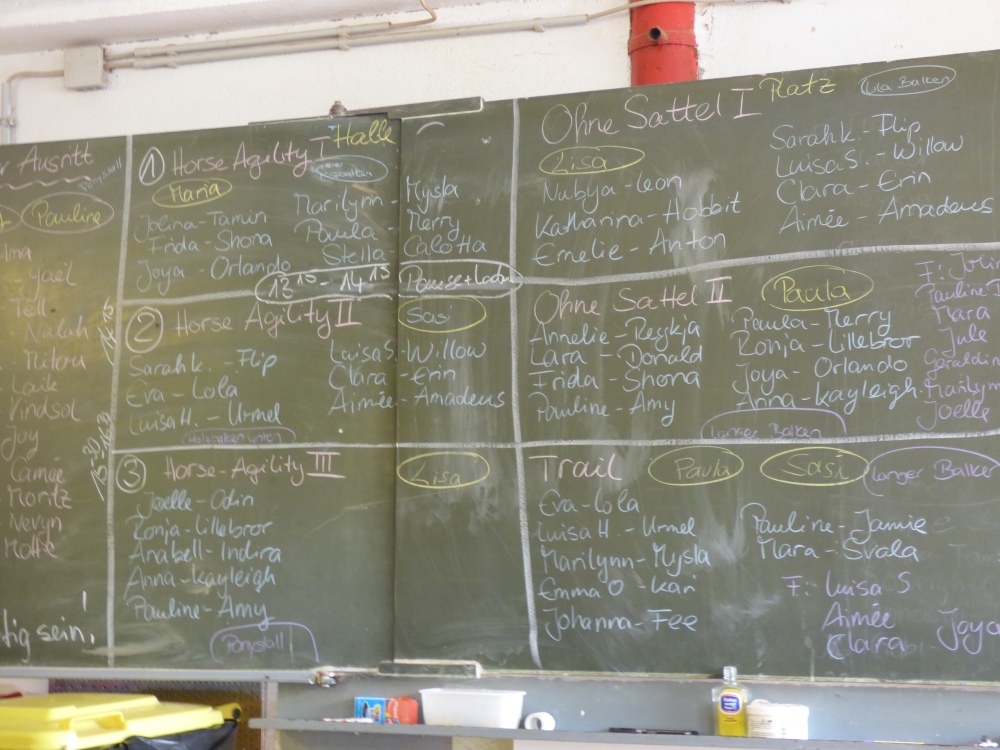 r Ausritt
Ponystall
Pauline
lma
Yaël
Tell
Nalah
Mitou
Laik
Vindsol
Joy
Camee
Moritz
Nevyn
Motte
tig sein!
① Horse Agility I Halle
Maria
Jolina - Tamin
Frida - Shona
Joya - Orlando
Marilynn - Mysla
Paula Merry
Stella Calotta
13¹⁰ - 14¹⁵ Pause + Laden
② Horse Agility II
Sasi
Sarah k. Flip
Eva - Lola
Luisa H. - Urmel
Luisa S. - Willow
Clara - Erin
Aimée - Amadeus
③ Horse-Agility III
Lisa
Joelle - Odin
Ronja - Lillebror
Anabell - Indira
Anna - Kayleigh
Pauline - Amy
Ponystall
Ohne Sattel I Platz
Lila Balken
Lisa
Nubya - Leon
Katharina - Hobbit
Emelie - Anton
Sarah k. - Flip
Luisa S. - Willow
Clara - Erin
Aimée - Amadeus
Ohne Sattel II
Paula
Annelie - Reykja
Lara - Donald
Frida - Shona
Pauline - Amy
Paula - Merry
Ronja - Lillebror
Joya - Orlando
Anna - Kayleigh
Langer Balken
F: Jolin
Pauline
Mara
Jule
Geraldin
Marilyn
Joelle
Trail
Paula
Sasi
langer Balken
Eva - Lola
Luisa H. - Urmel
Marilynn - Mysla
Emma O - Kari
Johanna - Fee
Pauline - Jamie
Mara - Svala
F: Luisa S
Aimée
Clara Joya